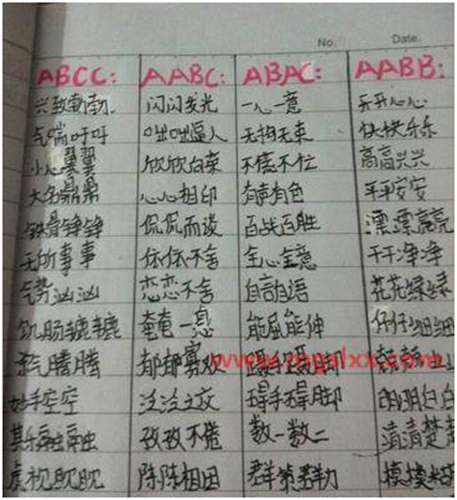 No. Date.
ABCC: AABC: ABAC: AABB:
兴致勃勃 闪闪发光 一心一意 开开心心
气喘吁吁 咄咄逼人 无拘无束 快快乐乐
小心翼翼 欣欣向荣 不慌不忙 高高兴兴
大名鼎鼎 心心相印 有声有色 平平安安
铁骨铮铮 侃侃而谈 百战百胜 漂漂亮亮
无所事事 依依不舍 全心全意 干干净净
气势汹汹 恋恋不舍 自言自语 花花绿绿
饥肠辘辘 奄奄一息 能屈能伸 仔仔细细
杀气腾腾 郁郁寡欢
妙手空空 泛泛之交 碍手碍脚 明明白白
其乐融融 孜孜不倦 数一数二 清清楚楚
虎视眈眈 陈陈相因 群策群力 模模糊